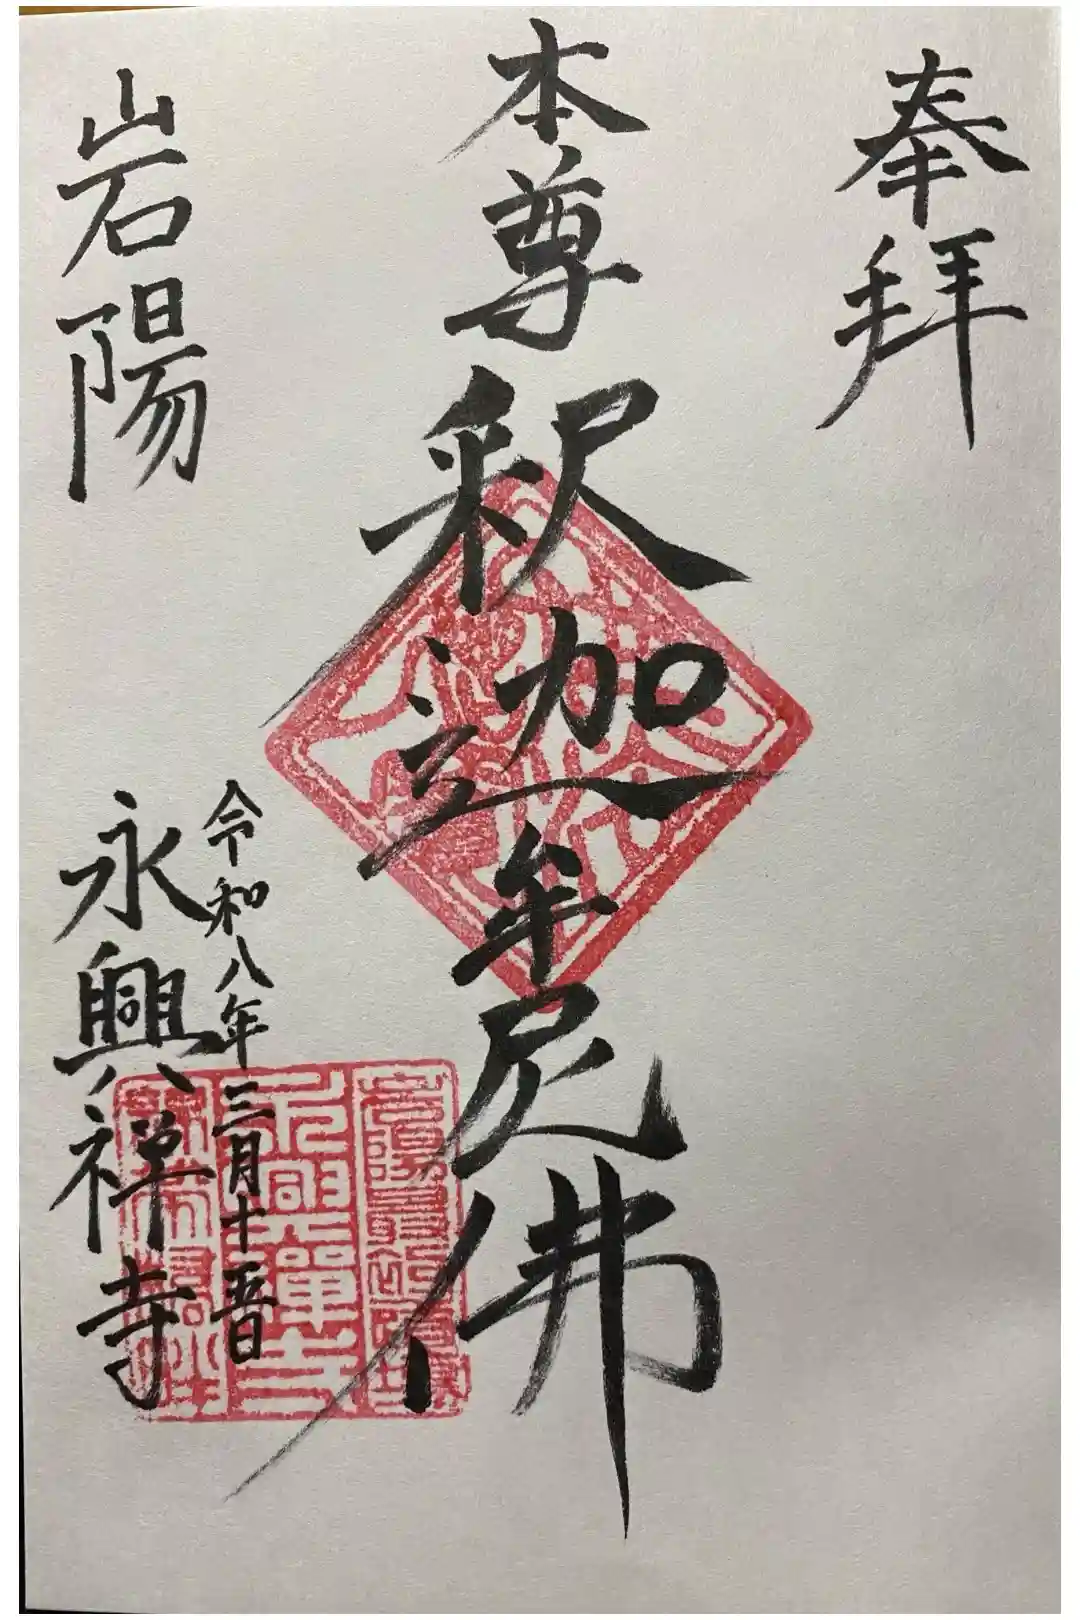 奉拝
本尊 釈迦牟尼佛
令和八年三月十五日
岩陽 永興禅寺
永興禪寺